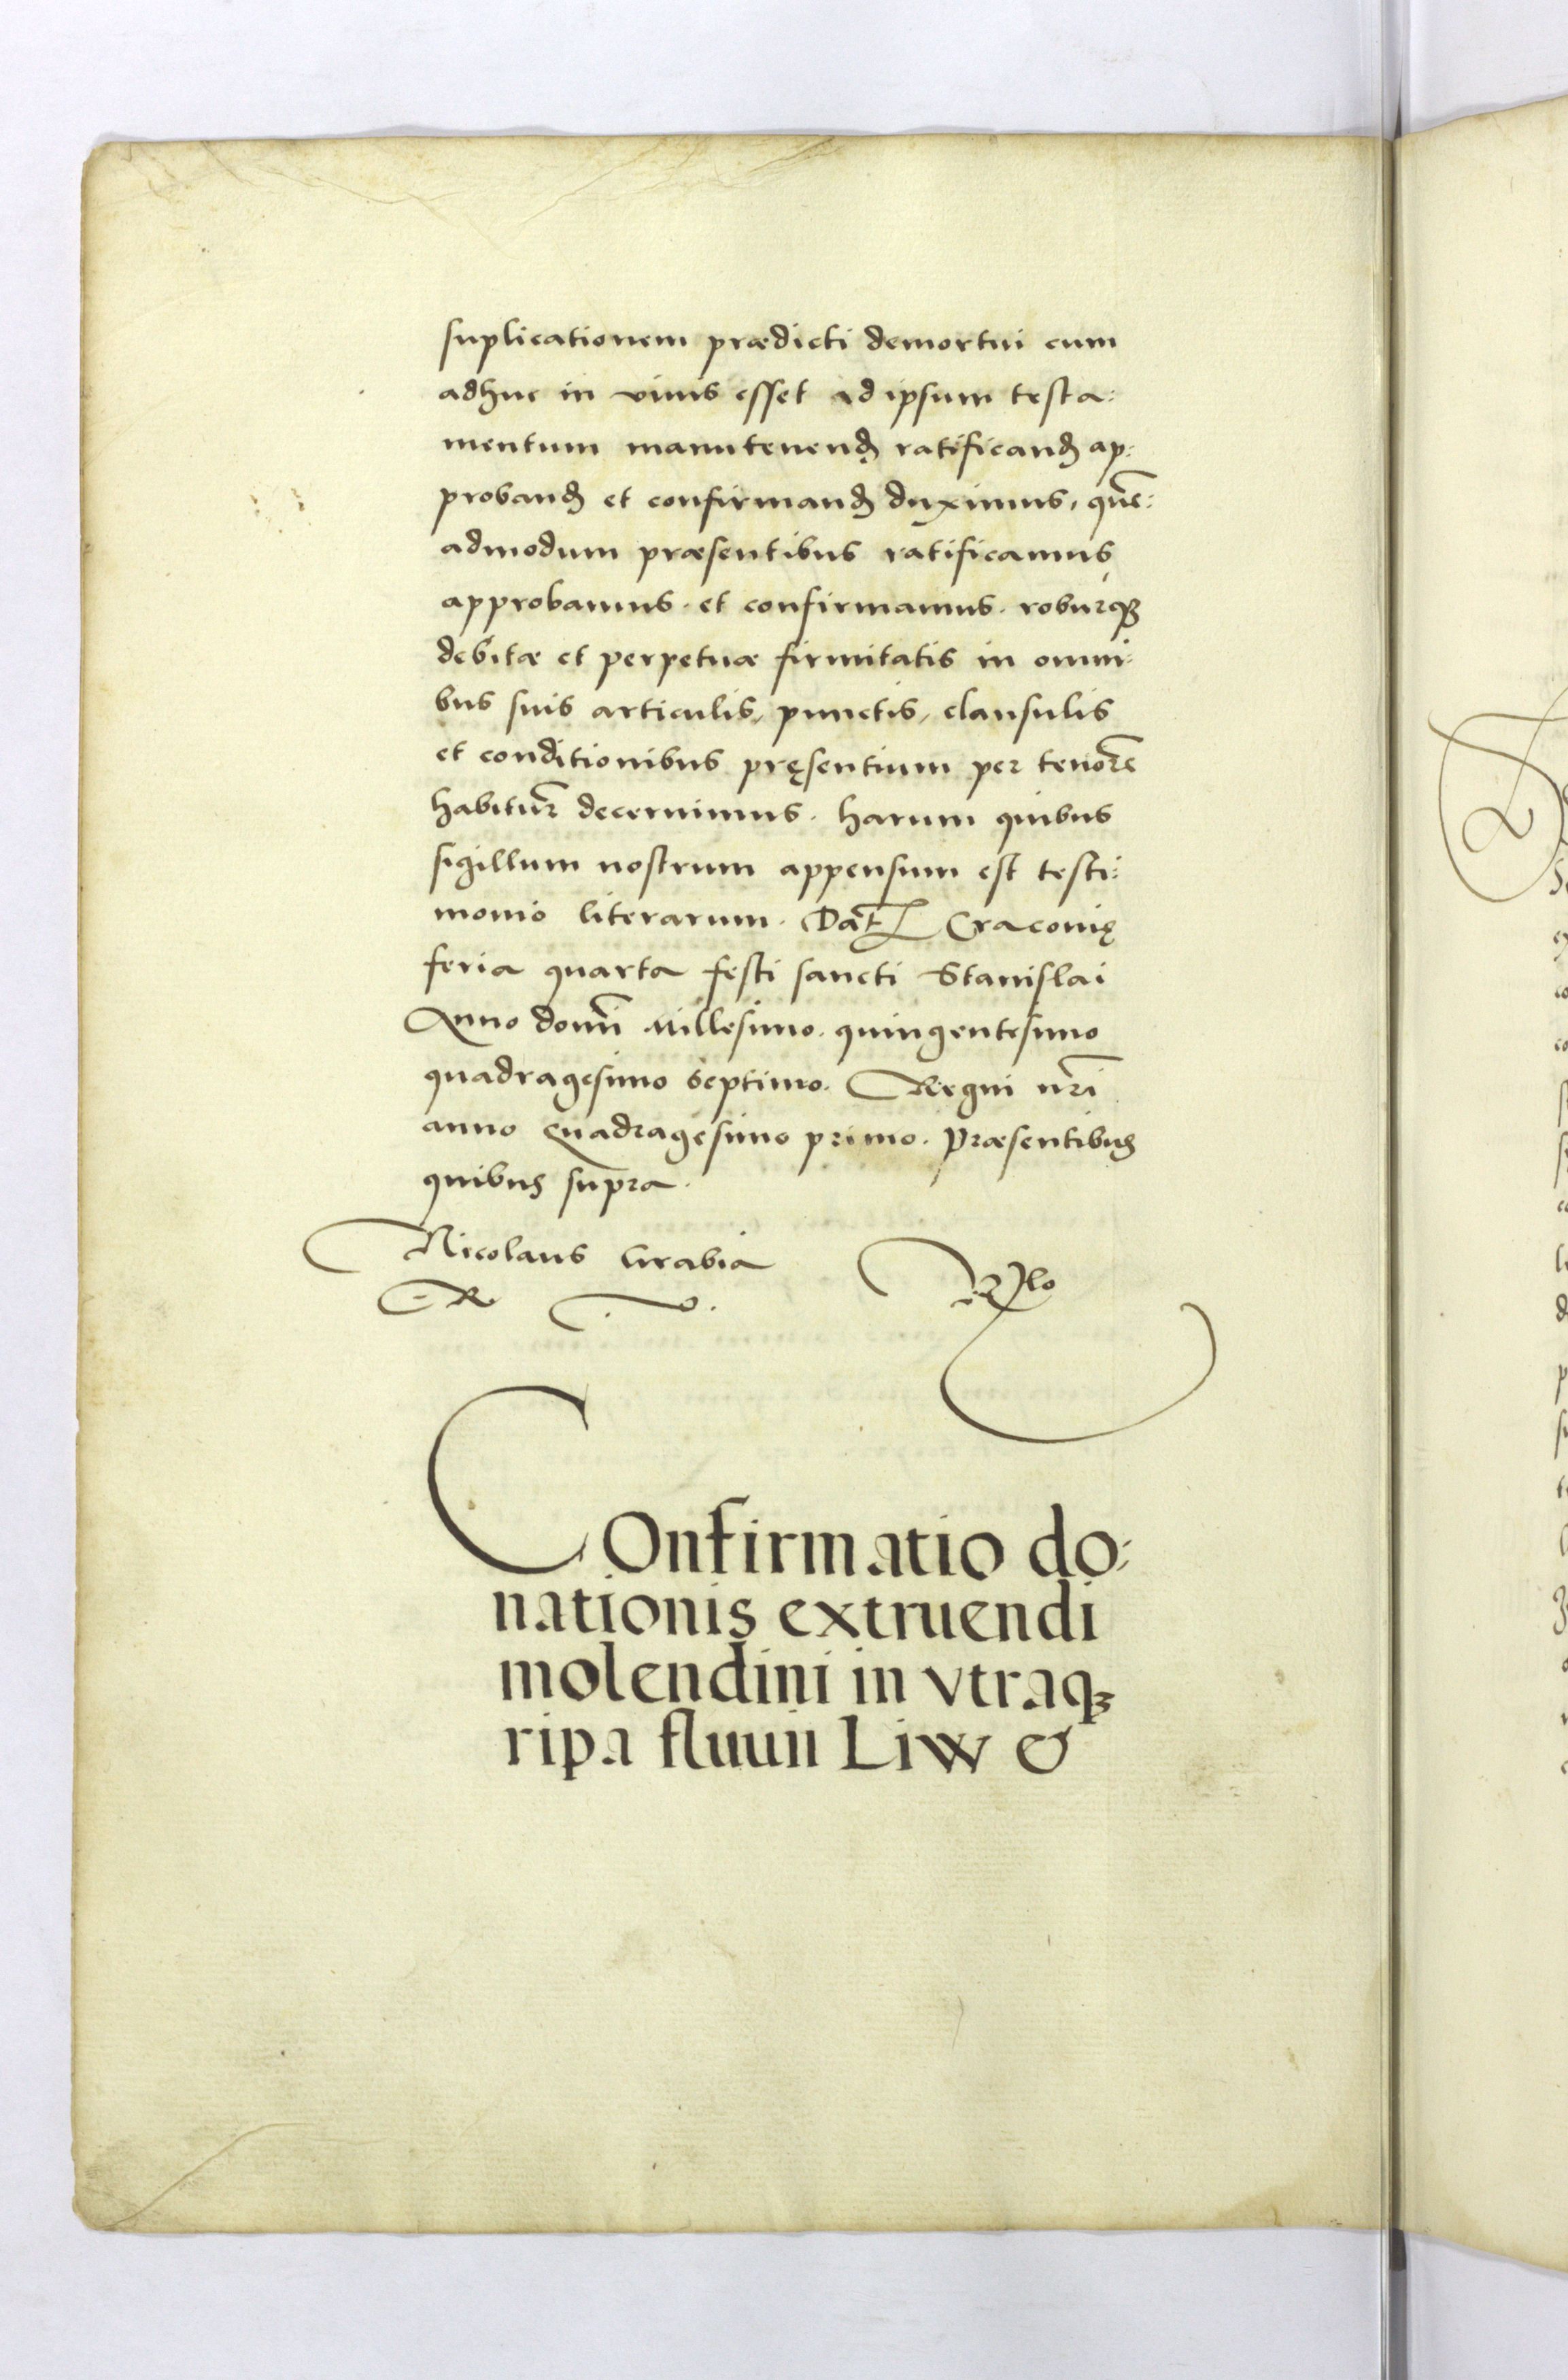 suplicationem prædicti demortui cum
adhuc in viuis esset ad ipsum testa:
mentum manutenend ratificand ap:
proband et confirmand duximus, que͂:
admodum præsentibus ratificamus
approbamus. et confirmamus. roburqꝫ
debitæ et perpetuæ firmitatis in omni:
bus suis articulis, punctis, clausulis
et conditionibus pręsentium per tenore͂
habitur͂ decernimus. harum quibus
sigillum nostrum appensum est testi:
monio literarum. Dat Cracouię
feria quarta festi sancti Stanislai
Anno domĩ Millesimo. quingentesimo
quadragesimo septimo. Regni nr̃i
anno quadragesimo primo. Præsentibus
quibus supra.
Nicolaus Grabia
R
COnfirmatio do:
nationis extruendi
molendini in vtraqꝫ
ripa fluuii Liw &